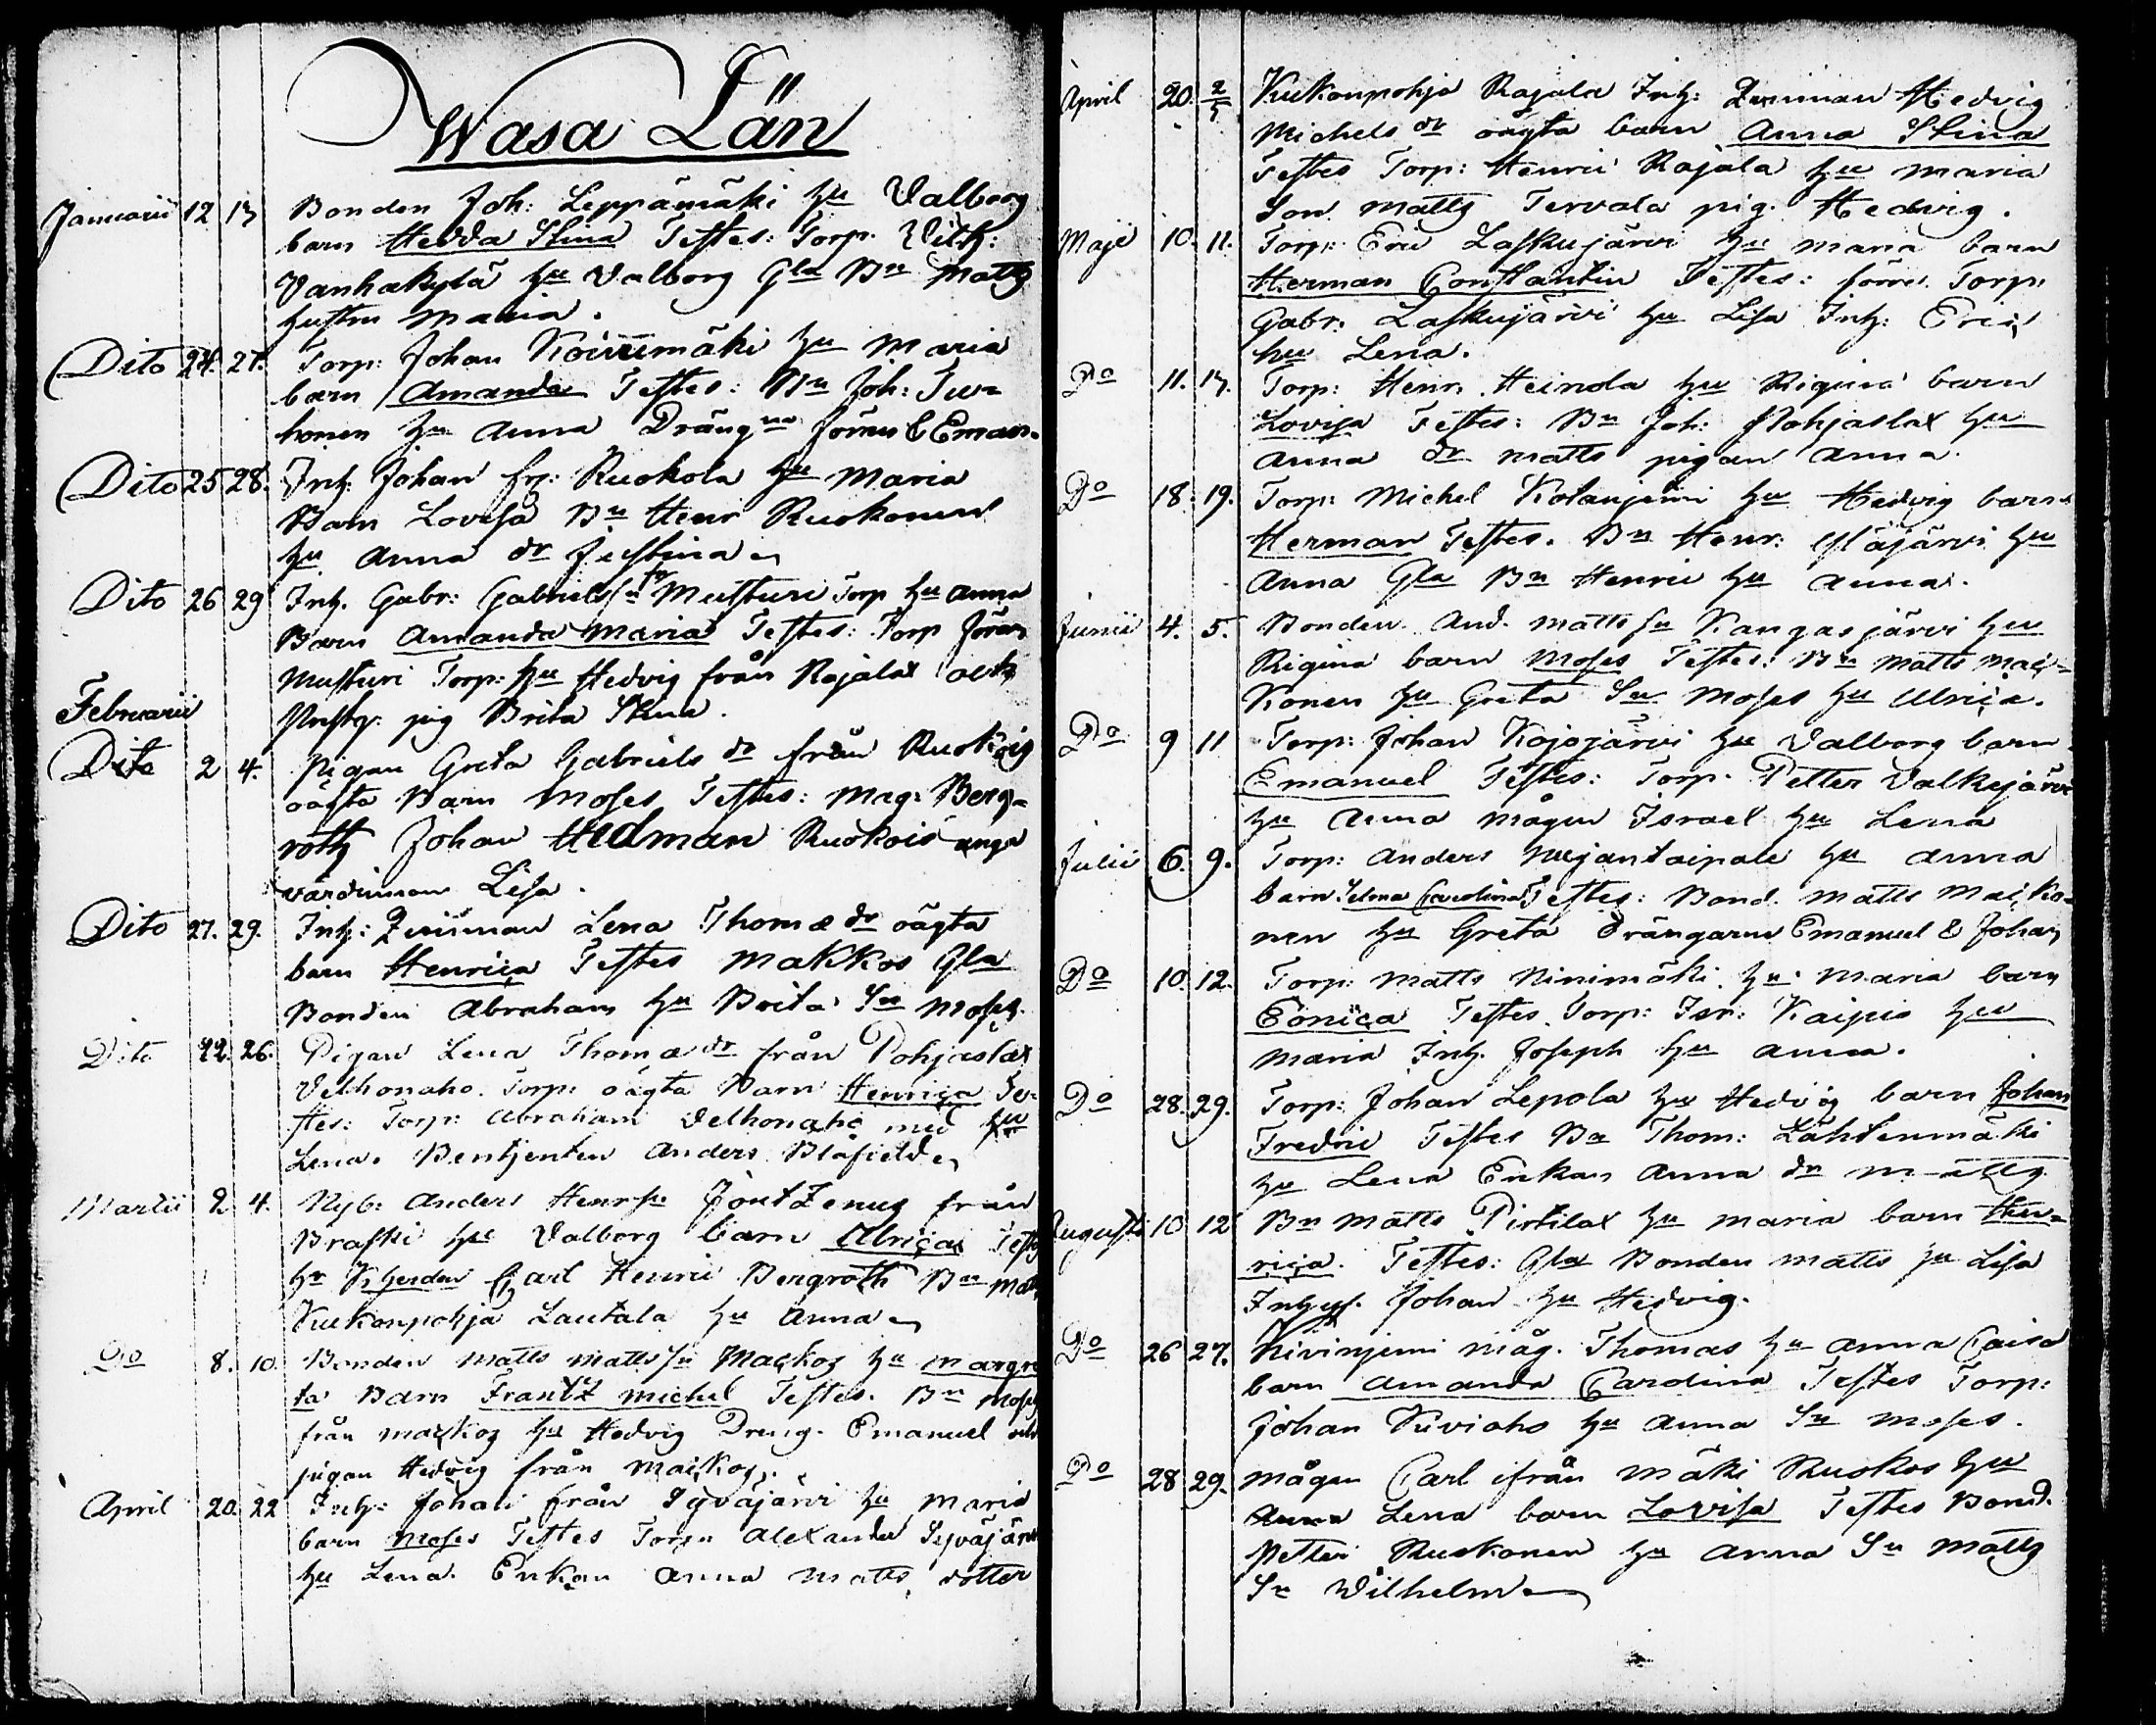 Wasa Län
Januarii 12 13 Bonden Joh: Leppämäki hu Valborg
barn Hedda Stina Testes: Torp. Vilh:
Vanhakylä hu Valborg Gla Bn Matts
hustru Maria.
Dito 24. 27. Torp: Johan Koivumäki hu Maria
barn Amanda Testes: Bn Joh: Tur=
honen hu Anna Dräng Jöran & Eman.
Dito 25 28. Inh. Johan fr: Ruokola hu Maria
Barn Lovisa Bn Henr Ruokonen
hu Anna dr Justina
Dito 26 29 Inh. Gabr: Gabrielsn fr Musturi Torp hu Anna
Barn Amanda Maria Testes: Torp Jöran
Musturi Torp: hu Hedvig från Rajalax och
pig Brita Stina.
Februarii
Dito 2 4. Pigan Greta Gabriels dr från Ruokois
oägta Barn Moses Testes: Mag: Berg=
roth Johan Hedman Ruokois unga
värdinnan Lisa.
Dito 27. 29. Inh: Qvinnan Lena Thomæ dr oägta
barn Henrica Testes Makkos Gla
Bonden Abraham hu Brita Sn Moses.
Dito 22. 26. Pigan Lena Thomæ dr från Pohjaslax
Velhonaho Torp: oägta Barn Henrica Tes=
tes: Torp: Abraham Velhonaho med hu
Lena. Betjenten Anders Blåfield
Martii 2 4. Nyb: Anders Henrsn Joutzenus från
Braski hu Valborg barn Ulrica Test
hr Carl Henric Bergroth Bn Mat
Kuckonpohja Lautala hu Anna
Do 8. 10. Bonden Matts Mattssn Mackos hu Margre
ta Barn Frantz Michel Testes. Bn Moses
från Mackos hu Hedvig Dreng. Emanuel och
pigan Hedvig från Mackos.
April 20. 22 Inh: Johan från Syväjärvi hu Maria
barn Moses Testes Torpn Alexander Syväjärvi
hu Lena. Enkan Anna Matts dotter
April 20. 2/5 Kuckonpohja Rajala Inh: Qvinnan Hedvig
Michels dr oägta barn Anna Stina
Testes Torp: Henric Rajala hu Maria
Son Matts Tervala pig. Hedvig.
Maji 10. 11. Torp: Eric Laskujärvi hu Maria barn
Herman Constantin Testes: förra Torp.
Gabr. Laskujärvi hu Lisa Inh: Eric
hu Lena.
Do 11. 13. Torp: Henr. Heinola hu Rigina barn
Lovisa Testes: Bn Joh: Pohjaslax hu
Anna dr Matts pigan Anna.
Do 18. 19. Torp: Michel Kotaniemi hu Hedvig barn
Herman Testes. Bn Henr: Yläjärvi hu
Anna Gla Bn Henric hu Anna.
Junii 4. 5. Bonden And. Matts sn Kangasjärvi hu
Rigina barn Moses Testes: Bn Matts Mac=
konen hu Greta Sn Moses hu Ulrica.
Do 9 11 Torp: Johan Kojojärvi hu Valborg barn
Emanuel Testes: Torp. Petter Valkejärvi
hu Anna mågen Israel hu Lena
Julii 6. 9. Torp: Anders Mujantaipale hu Anna
barn Selma Carolina Testes: Bond. Matts Macko=
nen hu Greta Drängarne Emanuel & Johan
Do 10. 12. Torp: Matts Ninimäki hu Maria barn
Eonica Testes. Torp: Isr: Kaipio hu
Maria Inh. Joseph hu Anna.
Do 28. 29. Torp: Johan Lepola hu Hedvig barn Johan
Fredric Testes Bn Thom: Lähtenmäki
hu Lena Enkan Anna dr Matts
Augusti 10 12 Bn Matts Pirtilax hu Maria barn Hen=
rica. Testes: Gla Bonden Matts hu Lisa
Inhys. Johan hu Hedvig.
Do 26 27. Kivinjemi måg. Thomas hu Anna Caisa
barn Amanda Carolina Testes Torp:
Johan Kiviaho hu Anna Sn Moses.
Do 28 29. Mågen Carl ifrån Mäki Ruokos hu
Anna Lena barn Lovisa Testes Bond.
Petter Ruokonen hu Anna Sn Matts
Sn Wilhelm